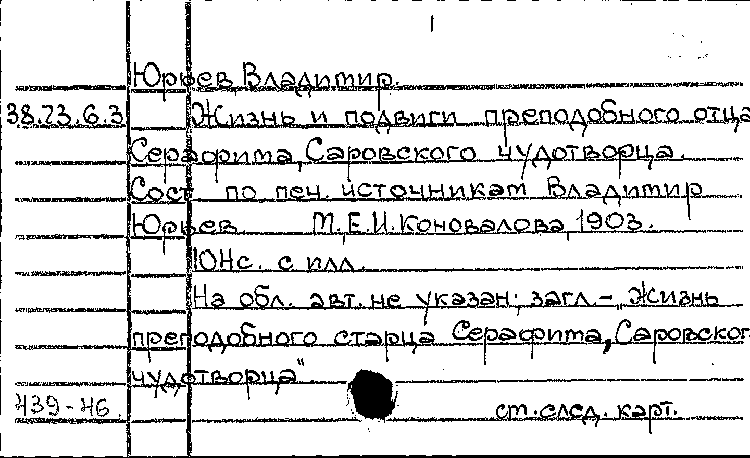 1
Юрьев Владимир.
38.23.6.3 Жизнь и подвиги преподобного отца
Серафима, Саровского чудотворца.
Сост по печ. источникам Владимир
Юрьев М. Е.И. Коновалова, 1903.
с илл.
На обл. авт. не указан; загл.- „Жизнь
преподобного старца Серафима, Саровског
чудотворца"
439-46. см. след. карт.